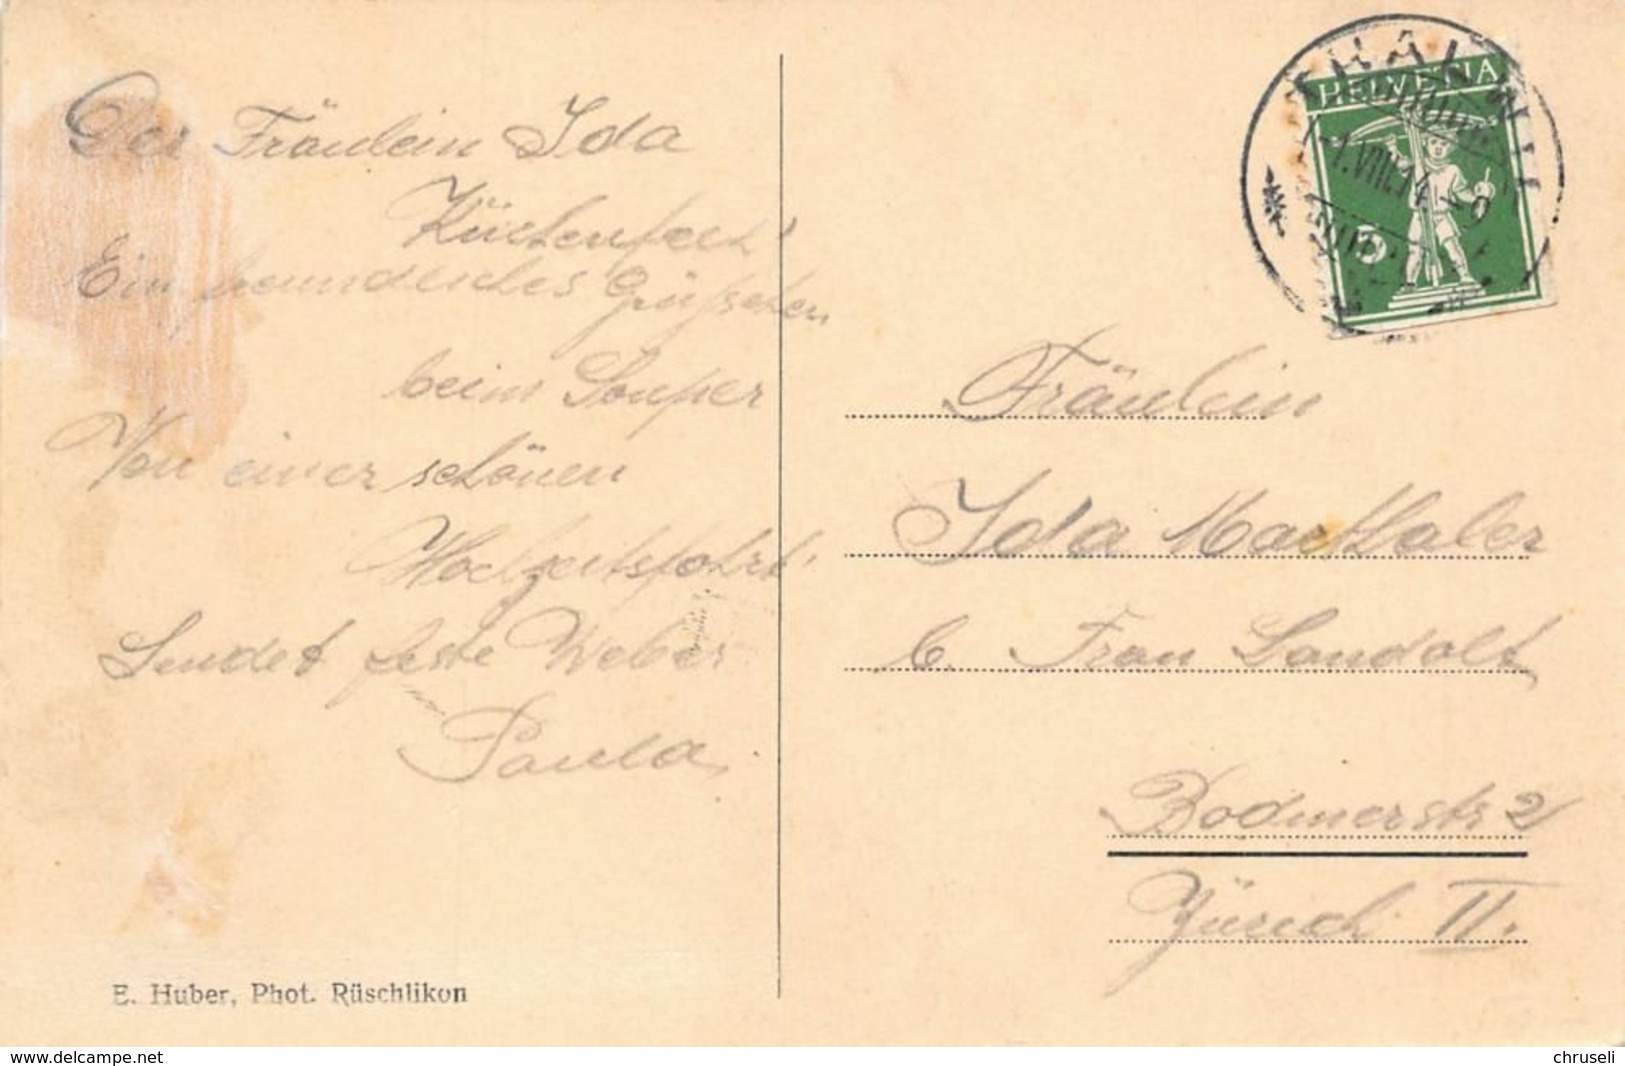 Der Fräulein Ida
Ein freundliches Grüßchen
beim Souper
Von einer schönen
Hochzeitsfahrt.
Sendet Weber
Paula.
E. Huber, Phot. Rüschlikon
THALWIL
HELVETIA
-1.VIII.14 -9
5
Fräulein
Ida Marthaler
b. Frau Landolt
Bodmerstr 2
Zürich II.
www.delcampe.net
chruseli